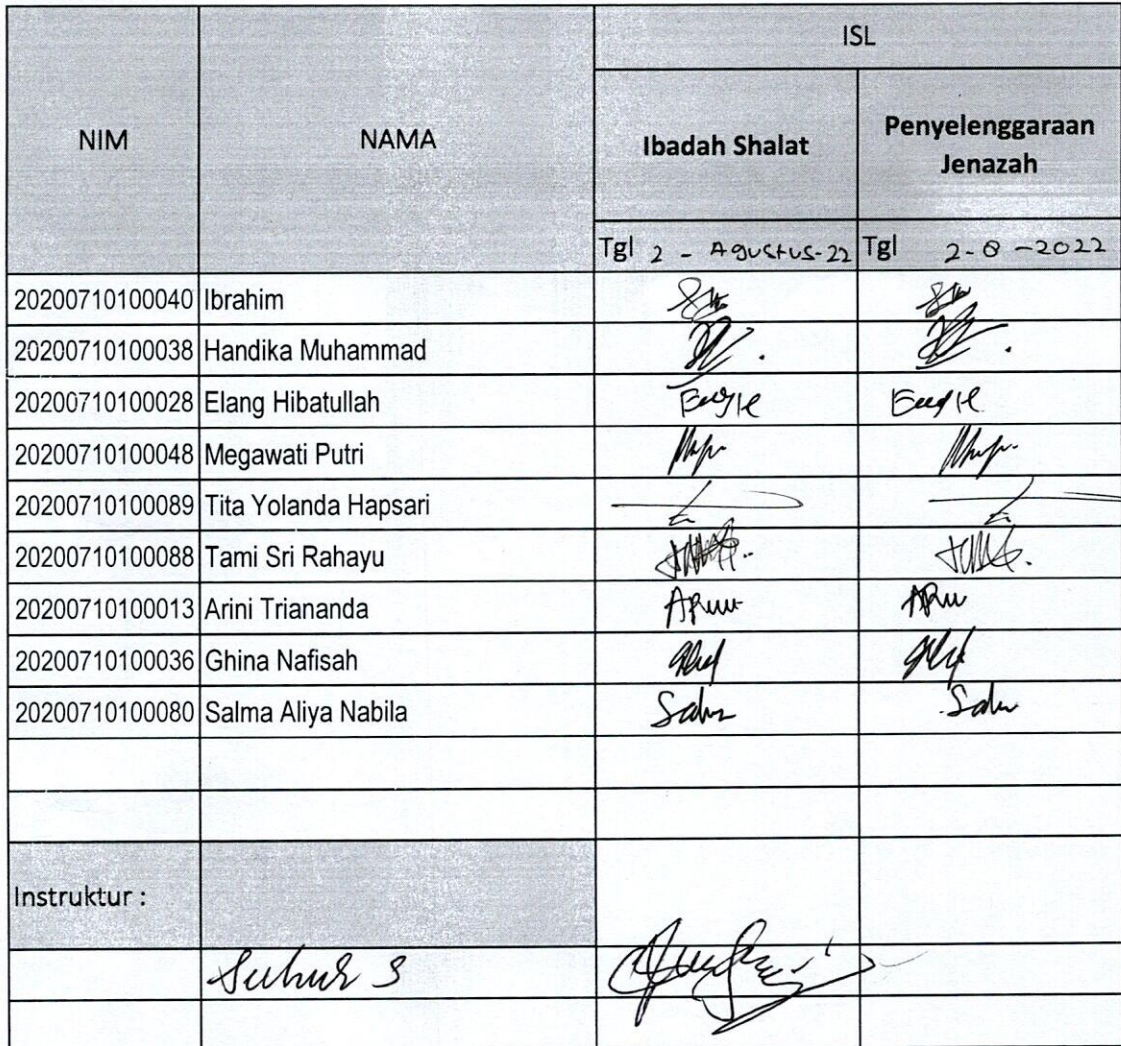 NIM
NAMA
ISL
Ibadah Shalat
Penyelenggaraan
Jenazah
Tgl 2 - Agustus-22 Tgl 2-8-2022
20200710100040 Ibrahim
20200710100038 Handika Muhammad
20200710100028 Elang Hibatullah
20200710100048 Megawati Putri
20200710100089 Tita Yolanda Hapsari
20200710100088 Tami Sri Rahayu
20200710100013 Arini Triananda
20200710100036 Ghina Nafisah
20200710100080 Salma Aliya Nabila
Instruktur :